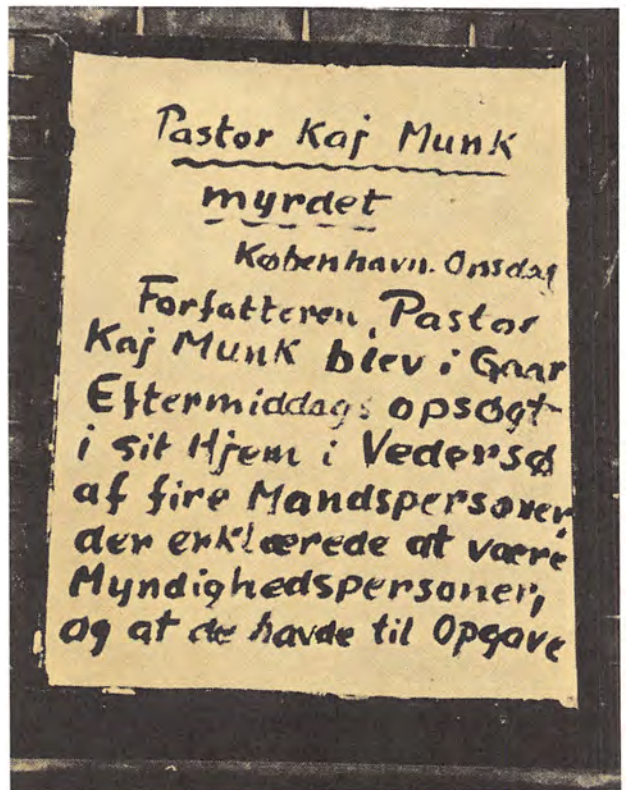 Pastor Kaj Munk
myrdet
København. Onsdag
Forfatteren, Pastor
Kaj Munk blev i Gaar
Eftermiddags opsøgt
i sit Hjem i Vedersø
af fire Mandspersoner,
der erklærede at være
Myndighedspersoner,
og at de havde til Opgave